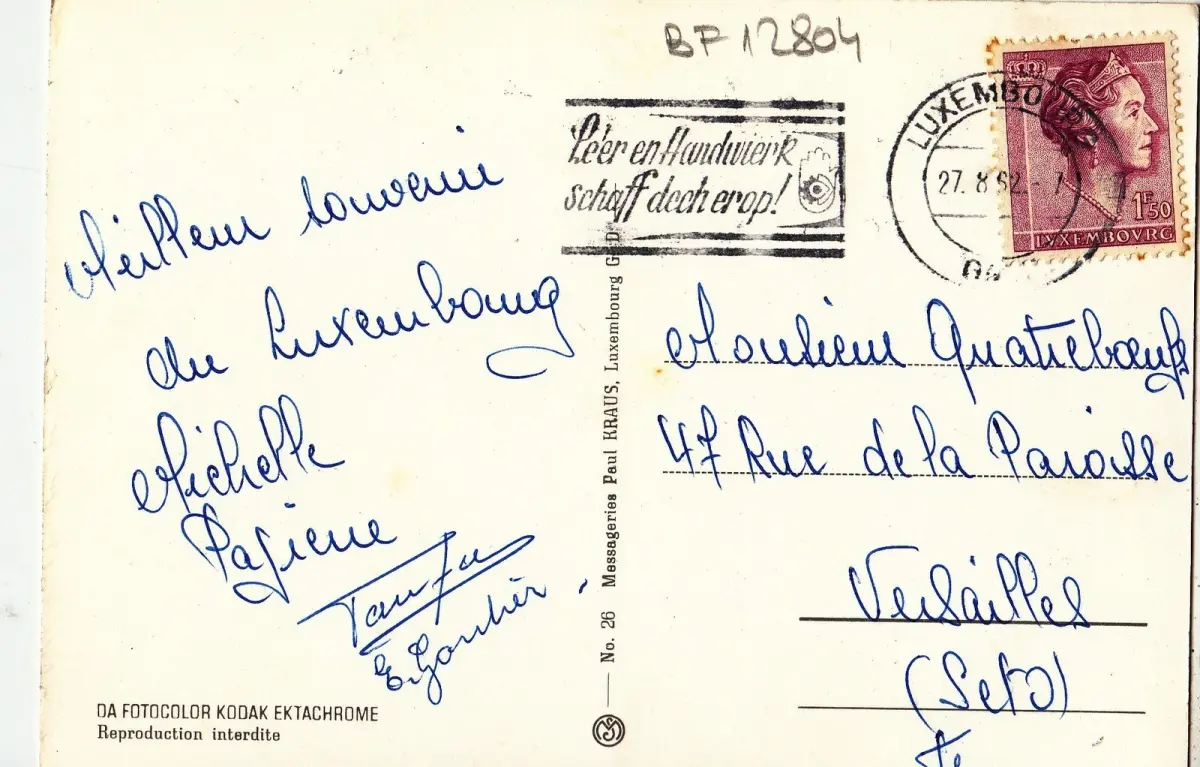 BF 12804
Lé'er en Handwierk
schaff dech erop!
LUXEMBOURG
27. 8 62
1F50
LUXEMBOVRG
Meilleur souvenir
du Luxembourg
Michelle
E. Gautier
Monsieur Quatreboeufs
47 Rue de la Paroisse
Versailles
(SetO)
No. 26 Messageries Paul KRAUS, Luxembourg G-D
DA FOTOCOLOR KODAK EKTACHROME
Reproduction interdite